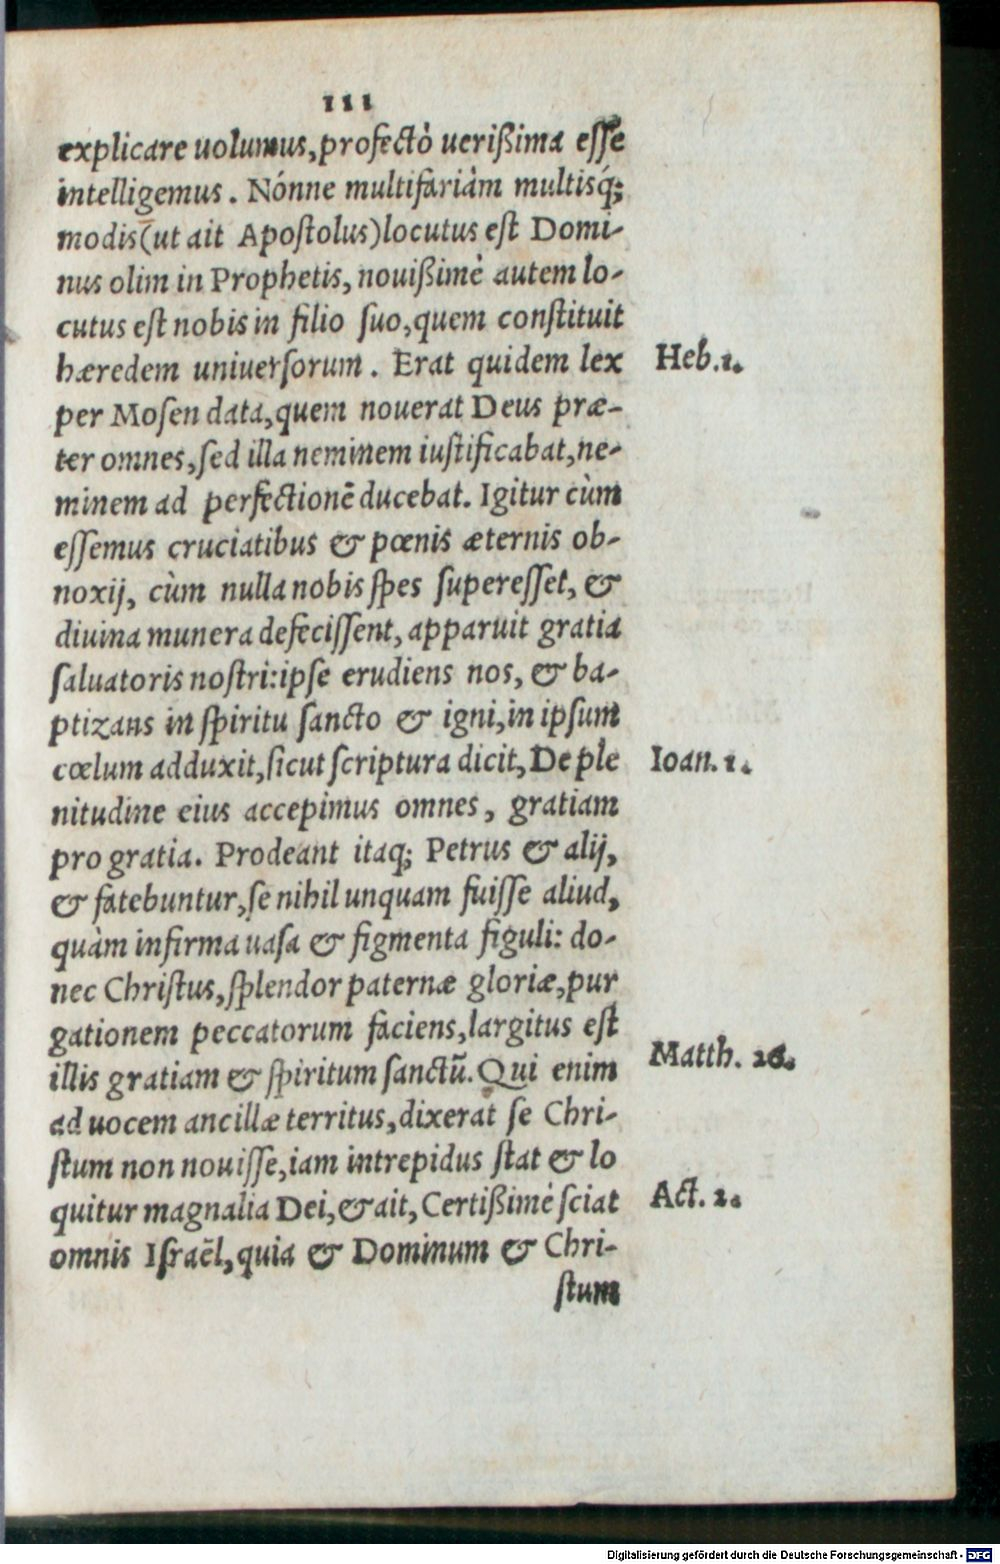 111
explicare uolumus, profectò uerißima esse
intelligemus. Nónne multifariàm multisq́;
modis (ut ait Apostolus) locutus est Domi-
nus olim in Prophetis, nouißimè autem lo-
cutus est nobis in filio suo, quem constituit
hæredem uniuersorum. Erat quidem lex
Heb. 1.
per Mosen data, quem nouerat Deus præ-
ter omnes, sed illa neminem iustificabat, ne-
minem ad perfectionē ducebat. Igitur cùm
essemus cruciatibus & pœnis æternis ob-
noxij, cùm nulla nobis spes superesset, &
diuina munera defecissent, apparuit gratia
saluatoris nostri: ipse erudiens nos, & ba-
ptizans in spiritu sancto & igni, in ipsum
cœlum adduxit, sicut scriptura dicit, De ple
Ioan. 1.
nitudine eius accepimus omnes, gratiam
pro gratia. Prodeant itaq; Petrus & alij,
& fatebuntur, se nihil unquam fuisse aliud,
quàm infirma uasa & figmenta figuli: do-
nec Christus, splendor paternæ gloriæ, pur
gationem peccatorum faciens, largitus est
illis gratiam & spiritum sanctū. Qui enim
Matth. 26.
ad uocem ancillæ territus, dixerat se Chri-
stum non nouisse, iam intrepidus stat & lo
quitur magnalia Dei, & ait, Certißimè sciat
Act. 2.
omnis Israēl, quia & Dominum & Chri-
stum
Digitalisierung gefördert durch die Deutsche Forschungsgemeinschaft - DFG